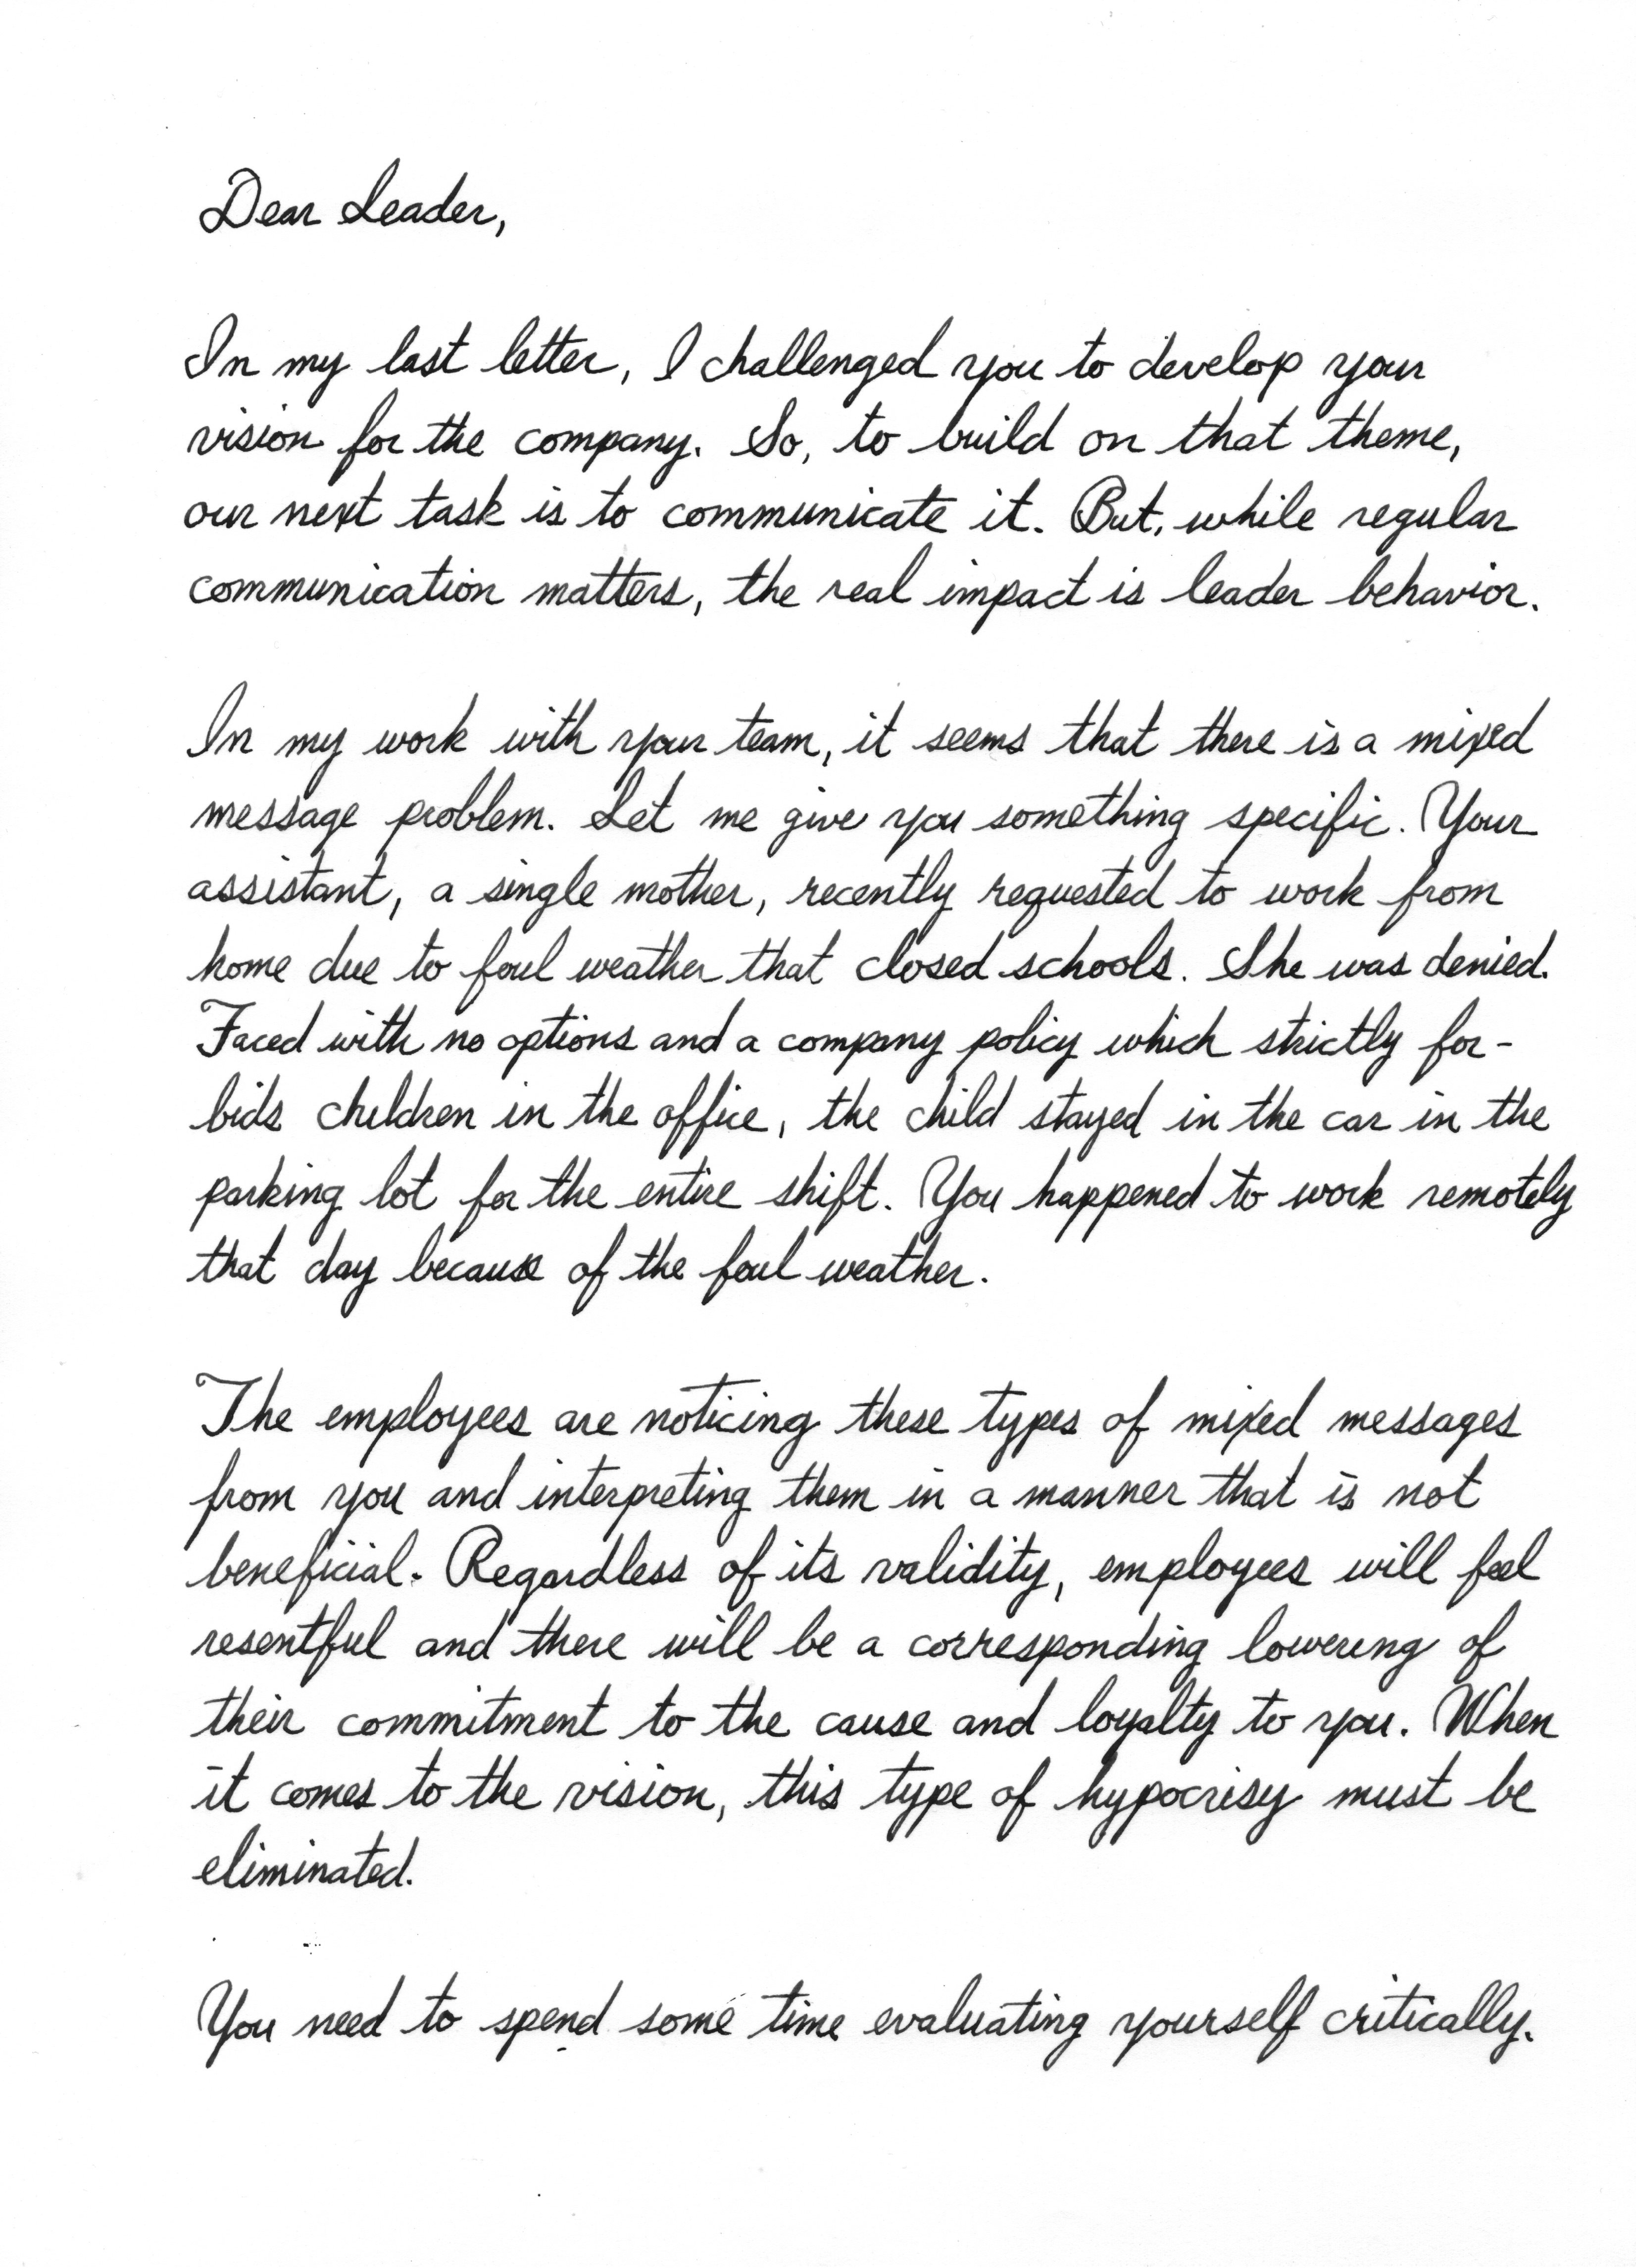 Dear Leader,
In my last letter, I challenged you to develop your
vision for the company. So, to build on that theme,
our next task is to communicate it. But, while regular
communication matters, the real impact is leader behavior.
In my work with your team, it seems that there is a mixed
message problem. Let me give you something specific. Your
assistant, a single mother, recently requested to work from
home due to foul weather that closed schools. She was denied.
Faced with no options and a company policy which strictly for-
bids children in the office, the child stayed in the car in the
parking lot for the entire shift. You happened to work remotely
that day because of the foul weather.
The employees are noticing these types of mixed messages
from you and interpreting them in a manner that is not
beneficial. Regardless of its validity, employees will feel
resentful and there will be a corresponding lowering of
their commitment to the cause and loyalty to you. When
it comes to the vision, this type of hypocrisy must be
eliminated.
You need to spend some time evaluating yourself critically.